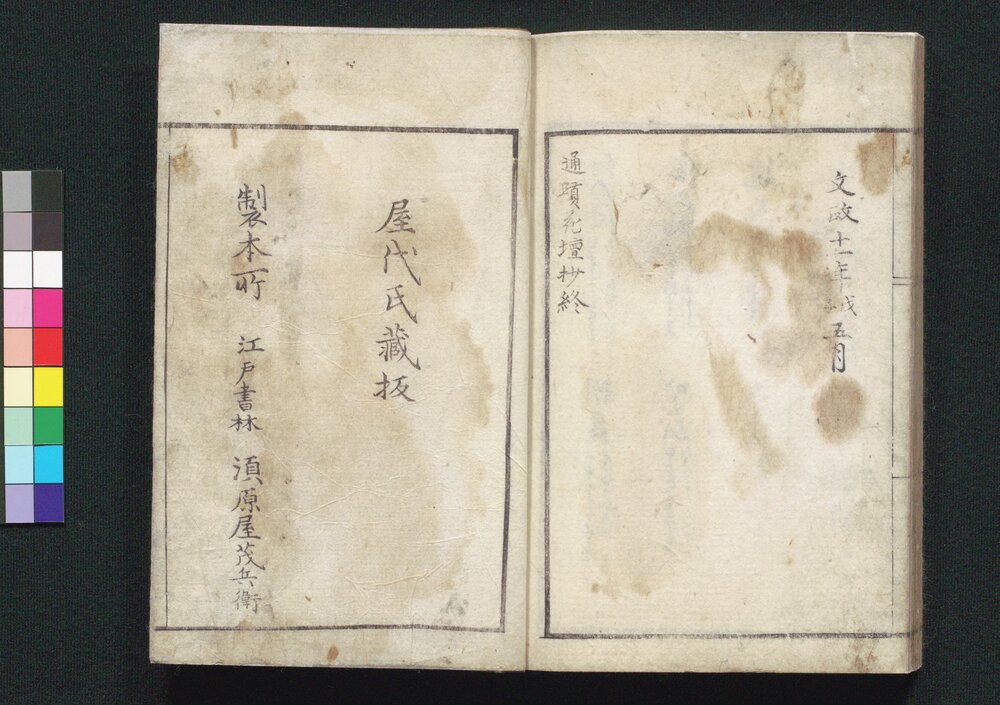 文政十一年戊子五月
通賾花壇抄終
屋代氏藏板
製本所 江戸書林 須原屋茂兵衛